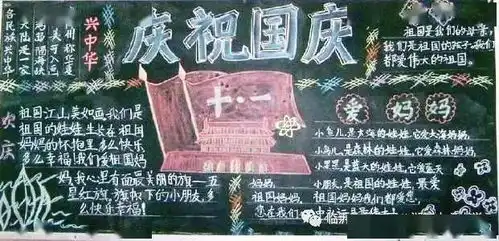 庆祝国庆
兴中华
各民族兴中华
大陆是一家
欢庆
祖国江山美如画我们是
祖国的娃娃生长在祖国
妈妈的怀抱里多么快乐
多么幸福!我们爱祖国妈
妈,我心里有面最美丽的旗—五
星红旗,旗帜下的小朋友,多
么快乐幸福!
十·一
祖国是我们的母亲,
我们是祖国的孩子,我们
都爱伟大的祖国。
爱妈妈
小鱼儿是大海的娃娃,它爱大海妈妈,
小鸟儿是森林的娃娃,它爱森林妈妈,
小星星是蓝天的娃娃,它爱蓝天
妈妈,
小朋友是祖国的娃娃,最爱
祖国妈妈,祖国妈妈我们都爱您,
您在我们